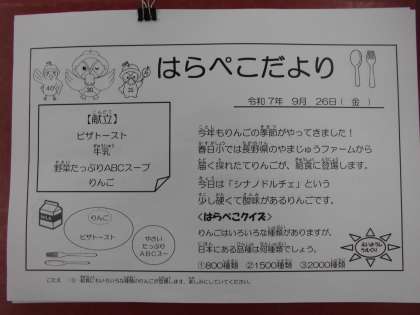 はらぺこだより
令和7年 9月 26日( 金 )
【献立】
ピザトースト
牛乳
野菜たっぷりABCスープ
りんご
今年もりんごの季節がやってきました！
春日小では長野県のやまじゅうファームから
届く採れたてりんごが、給食に登場します。
今日は「シナノドルチェ」という
少し硬くて酸味があるりんごです。
<はらぺこクイズ>
りんごはいろいろな種類がありますが、
日本にある品種は何種類でしょう。
①800種類 ②1500種類 ③2000種類
りんご
ピザトースト
やさい
たっぷり
ABCスープ